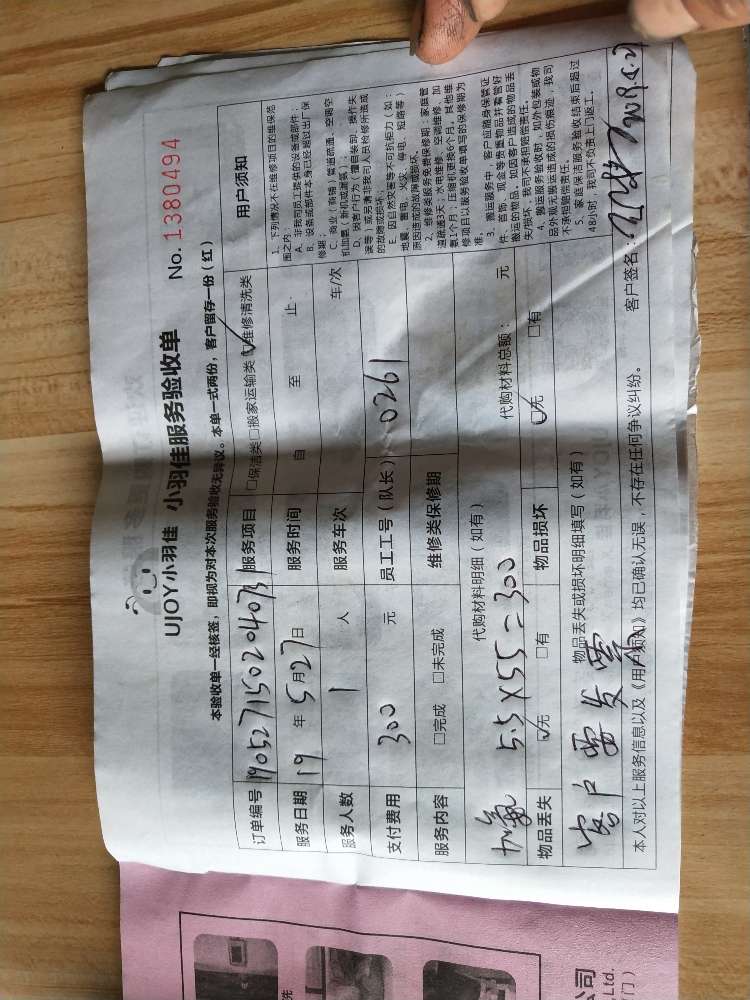 UJOY小羽佳 小羽佳服务验收单 No. 1380494
本验收单一经核签，即视为对本次服务验收无异议。本单一式两份，客户留存一份（红）
订单编号 190527150204073 服务项目 □保洁类□搬家运输类☑维修清洗类
服务日期 19 年 5 月 27 日 服务时间 自 至 止
服务人数 1 人 服务车次 车/次
支付费用 300 元 员工工号（队长） 0261
服务内容 □完成 □未完成 维修类保修期
代购材料明细（如有） 代购材料总额： 元
加氟 5.5×55=300
物品丢失 ☑无 □有 物品损坏 ☑无 □有
物品丢失或损坏明细填写（如有）
客户要发票
本人对以上服务信息以及《用户须知》均已确认无误，不存在任何争议纠纷。 客户签名：
用户须知
1、下列情况不在维修项目的维保范
围之内：
A、非我司员工提供的设备或部件；
B、设备或部件本身已经超过出厂保
修期；
C、商业（商铺）管道疏通、空调空
机加氟（新机或漏氟）；
D、因客户行为（擅自装卸、操作失
误等）或另请非我司人员检修所造成
的故障或损坏；
E、因自然灾害等不可抗拒力（如：
地震、雷电、火灾、停电、短路等）
原因造成的故障或损坏。
2、维修类服务免费保修期：家庭管
道疏通3天；水电维修、空调维修、加
氨1个月；压缩机更换6个月。其他维
修项目以服务验收单填写的保修期为
准。
3、搬运服务中，客户应随身保管证
件、首饰、现金等贵重物品并看管好
搬运的物品，如因客户造成的物品丢
失/损坏，我司不承担赔偿责任。
4、搬运服务验收时，如外包装或物
品外观无搬运造成的损伤痕迹，我司
不承担赔偿责任。
5、家庭保洁服务验收结束后超过
48小时，我司不负责上门返工。
洗
公司
Ltd.
门）